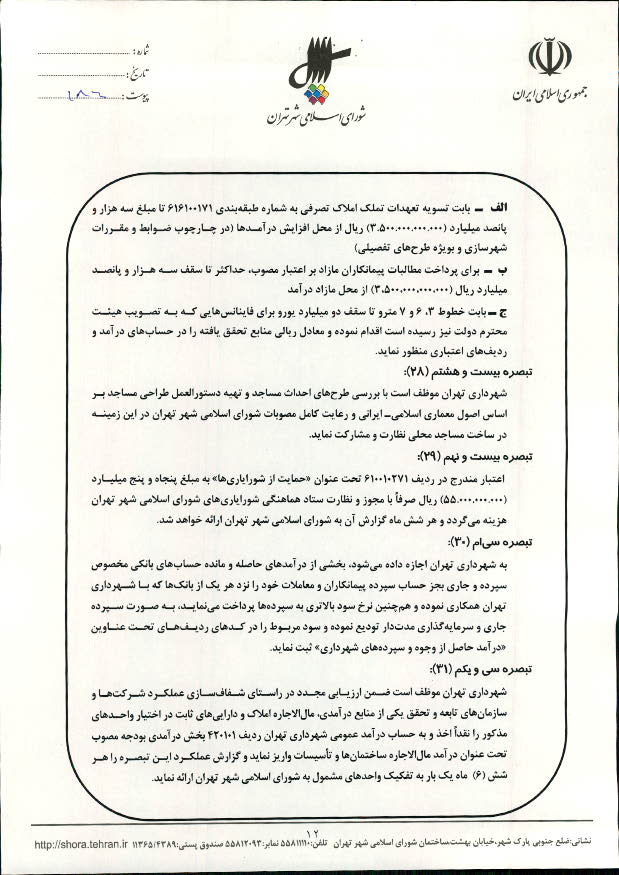 جمهوری اسلامی ایران
شورای اسلامی شهر تهران
شماره :
تاریخ :
پیوست :
الف – بابت تسویه تعهدات تملک املاک تصرفی به شماره طبقه‌بندی ۶۱۶۱۰۰۱۷۱ تا مبلغ سه هزار و
پانصد میلیارد (۳.۵۰۰.۰۰۰.۰۰۰.۰۰۰) ریال از محل افزایش درآمدها (در چارچوب ضوابط و مقررات
شهرسازی و بویژه طرح‌های تفصیلی)
ب – برای پرداخت مطالبات پیمانکاران مازاد بر اعتبار مصوب، حداکثر تا سقف سه هزار و پانصد
میلیارد ریال (۳,۵۰۰,۰۰۰,۰۰۰,۰۰۰) از محل مازاد درآمد
ج – بابت خطوط ۳، ۶ و ۷ مترو تا سقف دو میلیارد یورو برای فاینانس‌هایی که به تصویب هیئت
محترم دولت نیز رسیده است اقدام نموده و معادل ریالی منابع تحقق یافته را در حساب‌های درآمد و
ردیف‌های اعتباری منظور نماید.
تبصره بیست و هشتم (۲۸):
شهرداری تهران موظف است با بررسی طرح‌های احداث مساجد و تهیه دستورالعمل طراحی مساجد بر
اساس اصول معماری اسلامی– ایرانی و رعایت کامل مصوبات شورای اسلامی شهر تهران در این زمینه
در ساخت مساجد محلی نظارت و مشارکت نماید.
تبصره بیست و نهم (۲۹):
اعتبار مندرج در ردیف ۶۱۰۰۱۰۲۷۱ تحت عنوان «حمایت از شورایاری‌ها» به مبلغ پنجاه و پنج میلیارد
(۵۵.۰۰۰.۰۰۰.۰۰۰) ریال صرفاً با مجوز و نظارت ستاد هماهنگی شورایاری‌های شورای اسلامی شهر تهران
هزینه می‌گردد و هر شش ماه گزارش آن به شورای اسلامی شهر تهران ارائه خواهد شد.
تبصره سی‌ام (۳۰):
به شهرداری تهران اجازه داده می‌شود، بخشی از درآمدهای حاصله و مانده حساب‌های بانکی مخصوص
سپرده و جاری بجز حساب سپرده پیمانکاران و معاملات خود را نزد هر یک از بانک‌ها که با شهرداری
تهران همکاری نموده و هم‌چنین نرخ سود بالاتری به سپرده‌ها پرداخت می‌نماید، به صورت سپرده
جاری و سرمایه‌گذاری مدت‌دار تودیع نموده و سود مربوط را در کدهای ردیف‌های تحت عناوین
«درآمد حاصل از وجوه و سپرده‌های شهرداری» ثبت نماید.
تبصره سی و یکم (۳۱):
شهرداری تهران موظف است ضمن ارزیابی مجدد در راستای شفاف‌سازی عملکرد شرکت‌ها و
سازمان‌های تابعه و تحقق یکی از منابع درآمدی، مال‌الاجاره املاک و دارایی‌های ثابت در اختیار واحدهای
مذکور را نقداً اخذ و به حساب درآمد عمومی شهرداری تهران ردیف ۴۲۰۱۰۱ بخش درآمدی بودجه مصوب
تحت عنوان درآمد مال‌الاجاره ساختمان‌ها و تأسیسات واریز نماید و گزارش عملکرد این تبصره را هر
شش (۶) ماه یک بار به تفکیک واحدهای مشمول به شورای اسلامی شهر تهران ارائه نماید.
۱۲
نشانی:ضلع جنوبی پارک شهر،خیابان بهشت،ساختمان شورای اسلامی شهر تهران تلفن:۵۵۸۱۱۱۱۰ نمابر:۵۵۸۱۲۰۹۳ صندوق پستی:۱۱۳۶۵/۴۳۸۹ http://shora.tehran.ir